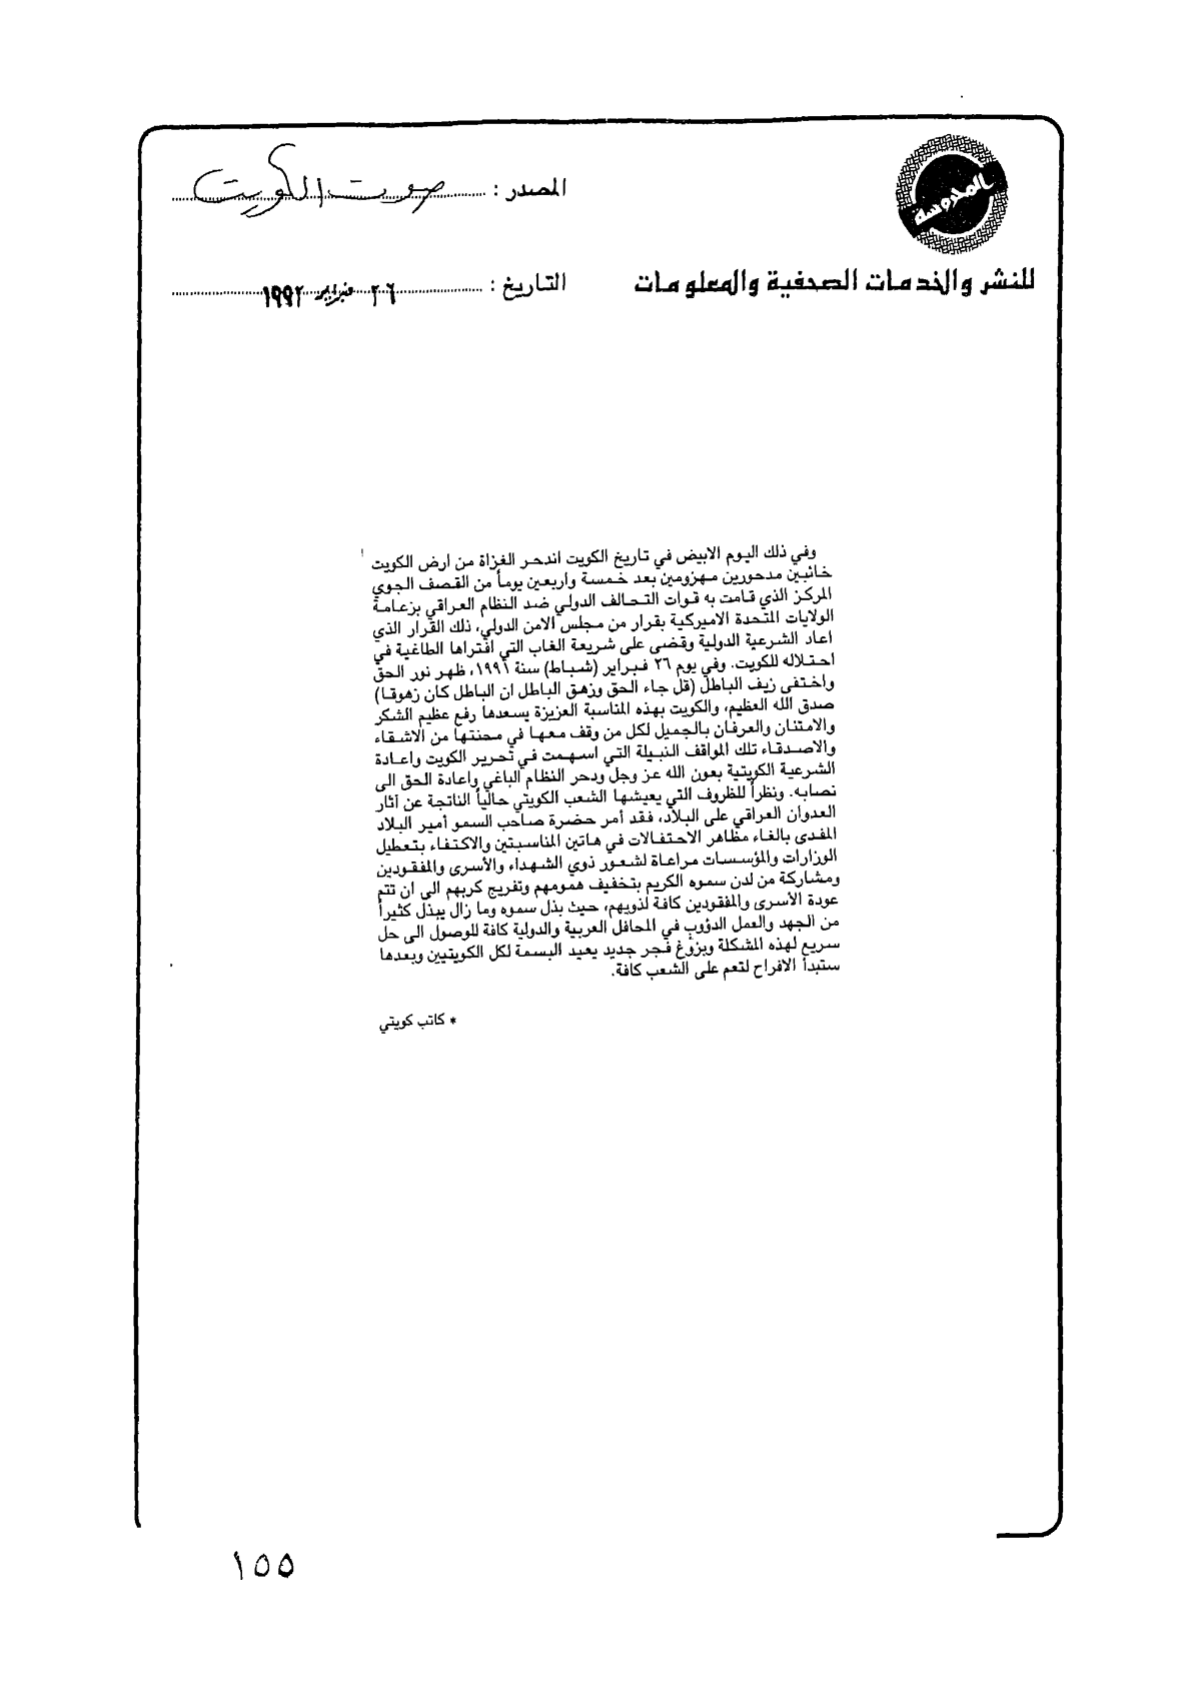 المدروسة
المصدر : صوت الكويت
للنشر والخدمات الصحفية والمعلومات
التاريخ : ٢٦ فبراير ١٩٩٢
وفي ذلك اليوم الابيض في تاريخ الكويت اندحر الغزاة من ارض الكويت
خائبين مدحورين مهزومين بعد خمسة واربعين يوماً من القصف الجوي
المركز الذي قامت به قوات التحالف الدولي ضد النظام العراقي بزعامة
الولايات المتحدة الاميركية بقرار من مجلس الامن الدولي، ذلك القرار الذي
اعاد الشرعية الدولية وقضى على شريعة الغاب التي افتراها الطاغية في
احتلاله للكويت. وفي يوم ٢٦ فبراير (شباط) سنة ١٩٩١، ظهر نور الحق
واختفى زيف الباطل (قل جاء الحق وزهق الباطل ان الباطل كان زهوقا)
صدق الله العظيم، والكويت بهذه المناسبة العزيزة يسعدها رفع عظيم الشكر
والامتنان والعرفان بالجميل لكل من وقف معها في محنتها من الاشقاء
والاصدقاء تلك المواقف النبيلة التي اسهمت في تحرير الكويت واعادة
الشرعية الكويتية بعون الله عز وجل ودحر النظام الباغي واعادة الحق الى
نصابه. ونظراً للظروف التي يعيشها الشعب الكويتي حالياً الناتجة عن آثار
العدوان العراقي على البلاد، فقد أمر حضرة صاحب السمو أمير البلاد
المفدى بالغاء مظاهر الاحتفالات في هاتين المناسبتين والاكتفاء بتعطيل
الوزارات والمؤسسات مراعاة لشعور ذوي الشهداء والأسرى والمفقودين
ومشاركة من لدن سموه الكريم بتخفيف همومهم وتفريج كربهم الى ان تتم
عودة الأسرى والمفقودين كافة لذويهم، حيث بذل سموه وما زال يبذل كثيراً
من الجهد والعمل الدؤوب في المحافل العربية والدولية كافة للوصول الى حل
سريع لهذه المشكلة وبزوغ فجر جديد يعيد البسمة لكل الكويتيين وبعدها
ستبدأ الافراح لتعم على الشعب كافة.
* كاتب كويتي
١٥٥